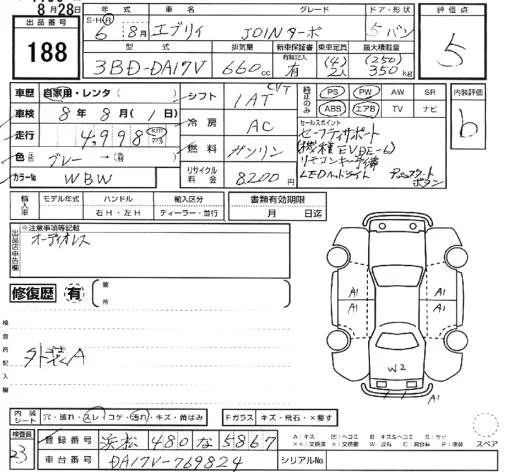 8月28日
出品番号
188
年式 車名 グレード ドア・形状 評価点
S・H・R 6年 8月 エブリイ JOINターボ 5バン 5
型式 排気量 新車保証書 乗車定員 最大積載量
3BD-DA17V 660cc 有 (4)2人 (250)350kg
車歴 自家用・レンタ( )
車検 8年 8月(1日)
走行 4,998 km
色 グレー→( )
カラー№ WBW
シフト CVT 1AT
冷房 AC
燃料 ガソリン
リサイクル料金 8200円
純正のみ PS PW AW SR
ABS エアB TV ナビ
内装評価 b
セールスポイント
セーフティサポート
(機種EVDE-6)
リモコンキー予備
LEDヘッドライト プッシュスタートボタン
輸入車 モデル年式 ハンドル 輸入区分 書類有効期限
右H・左H ディーラー・並行 月 日迄
出品店申告欄 ※注意事項等記載
オーディオレス
修復歴 有 箇所
検査員記入欄
外装A
A1
A1 A1
A1
W2
内装シート 穴・破れ・スレ・コゲ・汚れ・キズ・黄ばみ Fガラス キズ・飛石・×要す
スペア
検査員 23
登録番号 浜松 480 な 5867
車台番号 DA17V-769824 シリアル№